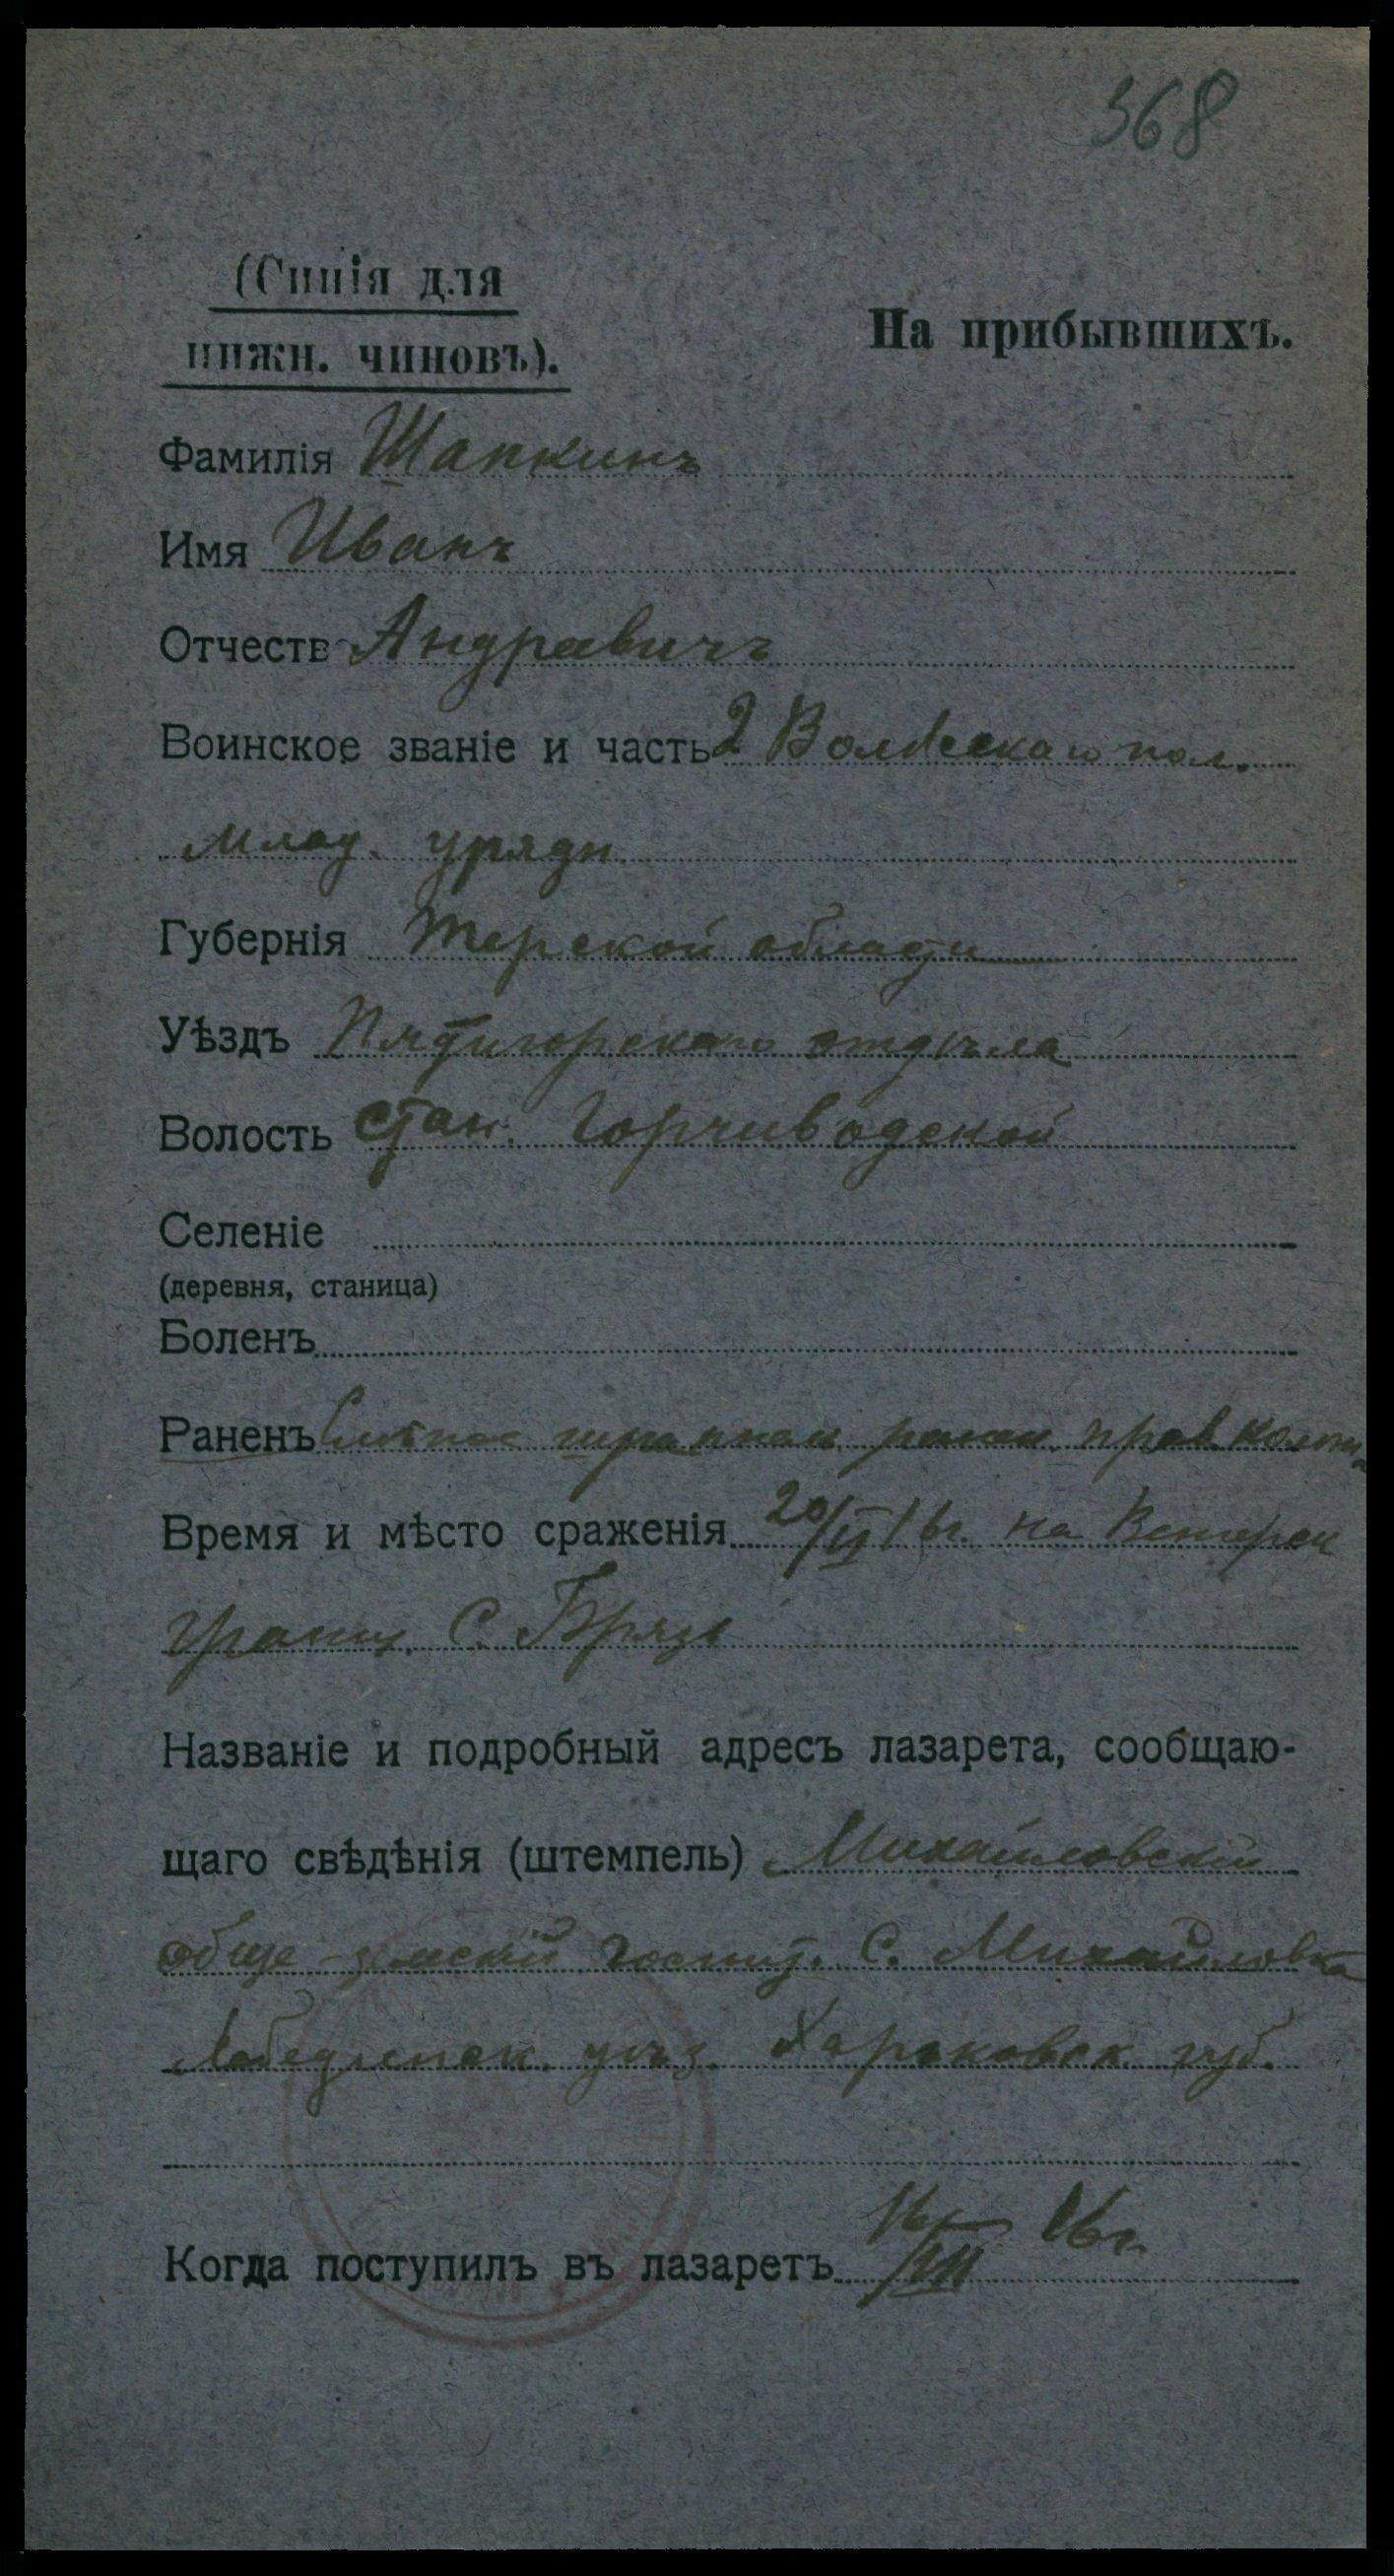 368
(Синія для
нижн. чиновъ).
На прибывшихъ.
Фамилія Шапкинъ
Имя Иванъ
Отчеств Андравичъ
Воинское званіе и часть 2 Волжскаго пол.
млад. урядн.
Губернія Терской области
Уѣздъ Пятигорскаго отдѣла
Волость Стан. Горячеводской
Селеніе
(деревня, станица)
Боленъ
Раненъ рана прав.
Время и мѣсто сраженія 20/II 16г. на Венгерск
границ. С.
Названіе и подробный адресъ лазарета, сообщаю-
щаго свѣдѣнія (штемпель) Михайловскій
обще-земскій госпит. С. Михайловка
Лебединск. уѣзд. Харьковск. губ.
Когда поступилъ въ лазаретъ 16/VII 16г.